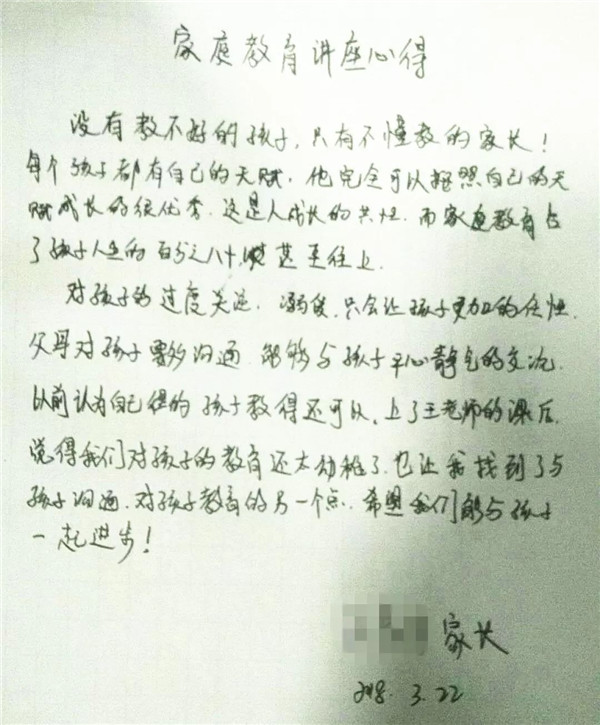 家庭教育讲座心得
没有教不好的孩子,只有不懂教的家长!
每个孩子都有自己的天赋.他完全可以按照自己的天
赋成长的很优秀.这是人成长的共性.而家庭教育占
了孩子人生的百分之八十,甚至往上.
对孩子的过度关注.溺爱.只会让孩子更加的任性.
父母对孩子要多沟通.能够与孩子平心静气的交流.
以前认为自己的孩子教得还可以.上了王老师的课后.
觉得我们对孩子的教育还太幼稚了.也让我找到了与
孩子沟通.对孩子教育的另一个点.希望我们能与孩子
一起进步!
家长
2018.3.22